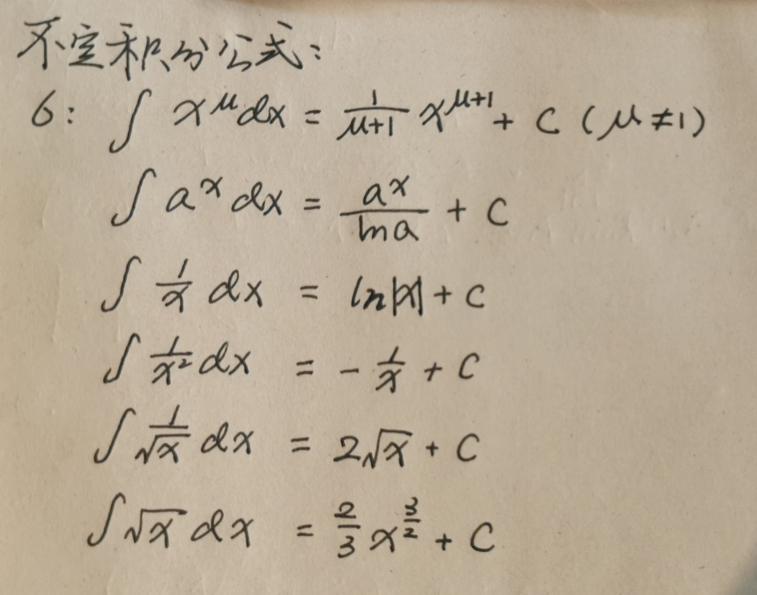 不定积分公式:
6: ∫ x^μ dx = 1/(μ+1) x^(μ+1) + C (μ≠1)
∫ a^x dx = a^x/lna + C
∫ 1/x dx = ln|x| + C
∫ 1/x² dx = -1/x + C
∫ 1/√x dx = 2√x + C
∫ √x dx = 2/3 x^(3/2) + C